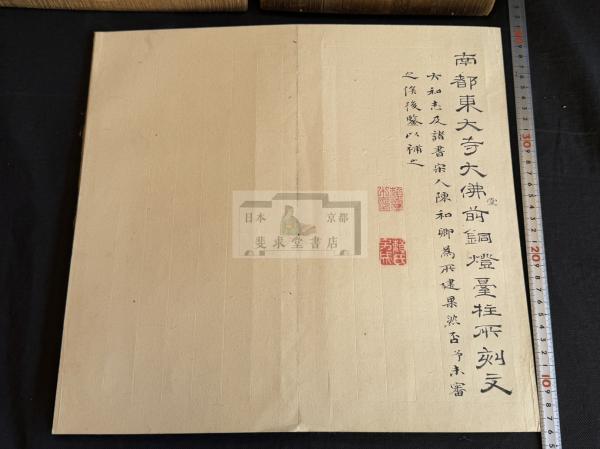 南都東大寺大佛前銅燈臺柱所刻文
堂
大和志及諸書宋人陳和卿為所建果然否予未審
之俟後鑒以補之
日本 京都
斐求堂書店
30
20
10